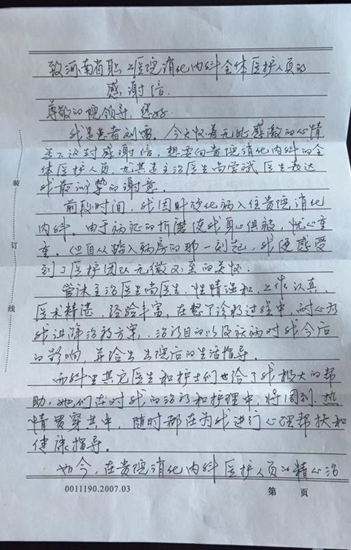 致河南省职工医院消化内科全体医护人员的
感谢信
尊敬的院领导 您好
我是患者刘 今天怀着无比感激的心情
写下这封感谢信，想要向贵院消化内科的全
体医护人员，尤其是主治医生尚 医生表达
我最诚挚的谢意。
前段时间，我因肝硬化病入住贵院消化
内科。由于病症的折磨使我身心俱疲，忧心重
重，但自从踏入病房的那一刻起，我便感受
到了医护团队无微不至的关怀。
管床主治医生尚医生，性格温和，工作认真，
医术精湛，经验丰富，在整个诊疗过程中，耐心为
我讲解治疗方案，治疗目的以及该病对我今后
的影响，并给出出院后的生活指导。
而科里其它医生和护士们也给了我极大的帮
助，她们在对我的治疗和护理中，将周到、热
情贯穿其中，随时都在为我进行心理帮扶和
健康指导。
如今，在贵院消化内科医护人员的精心治
0011190.2007.03 第 页
装 订 线